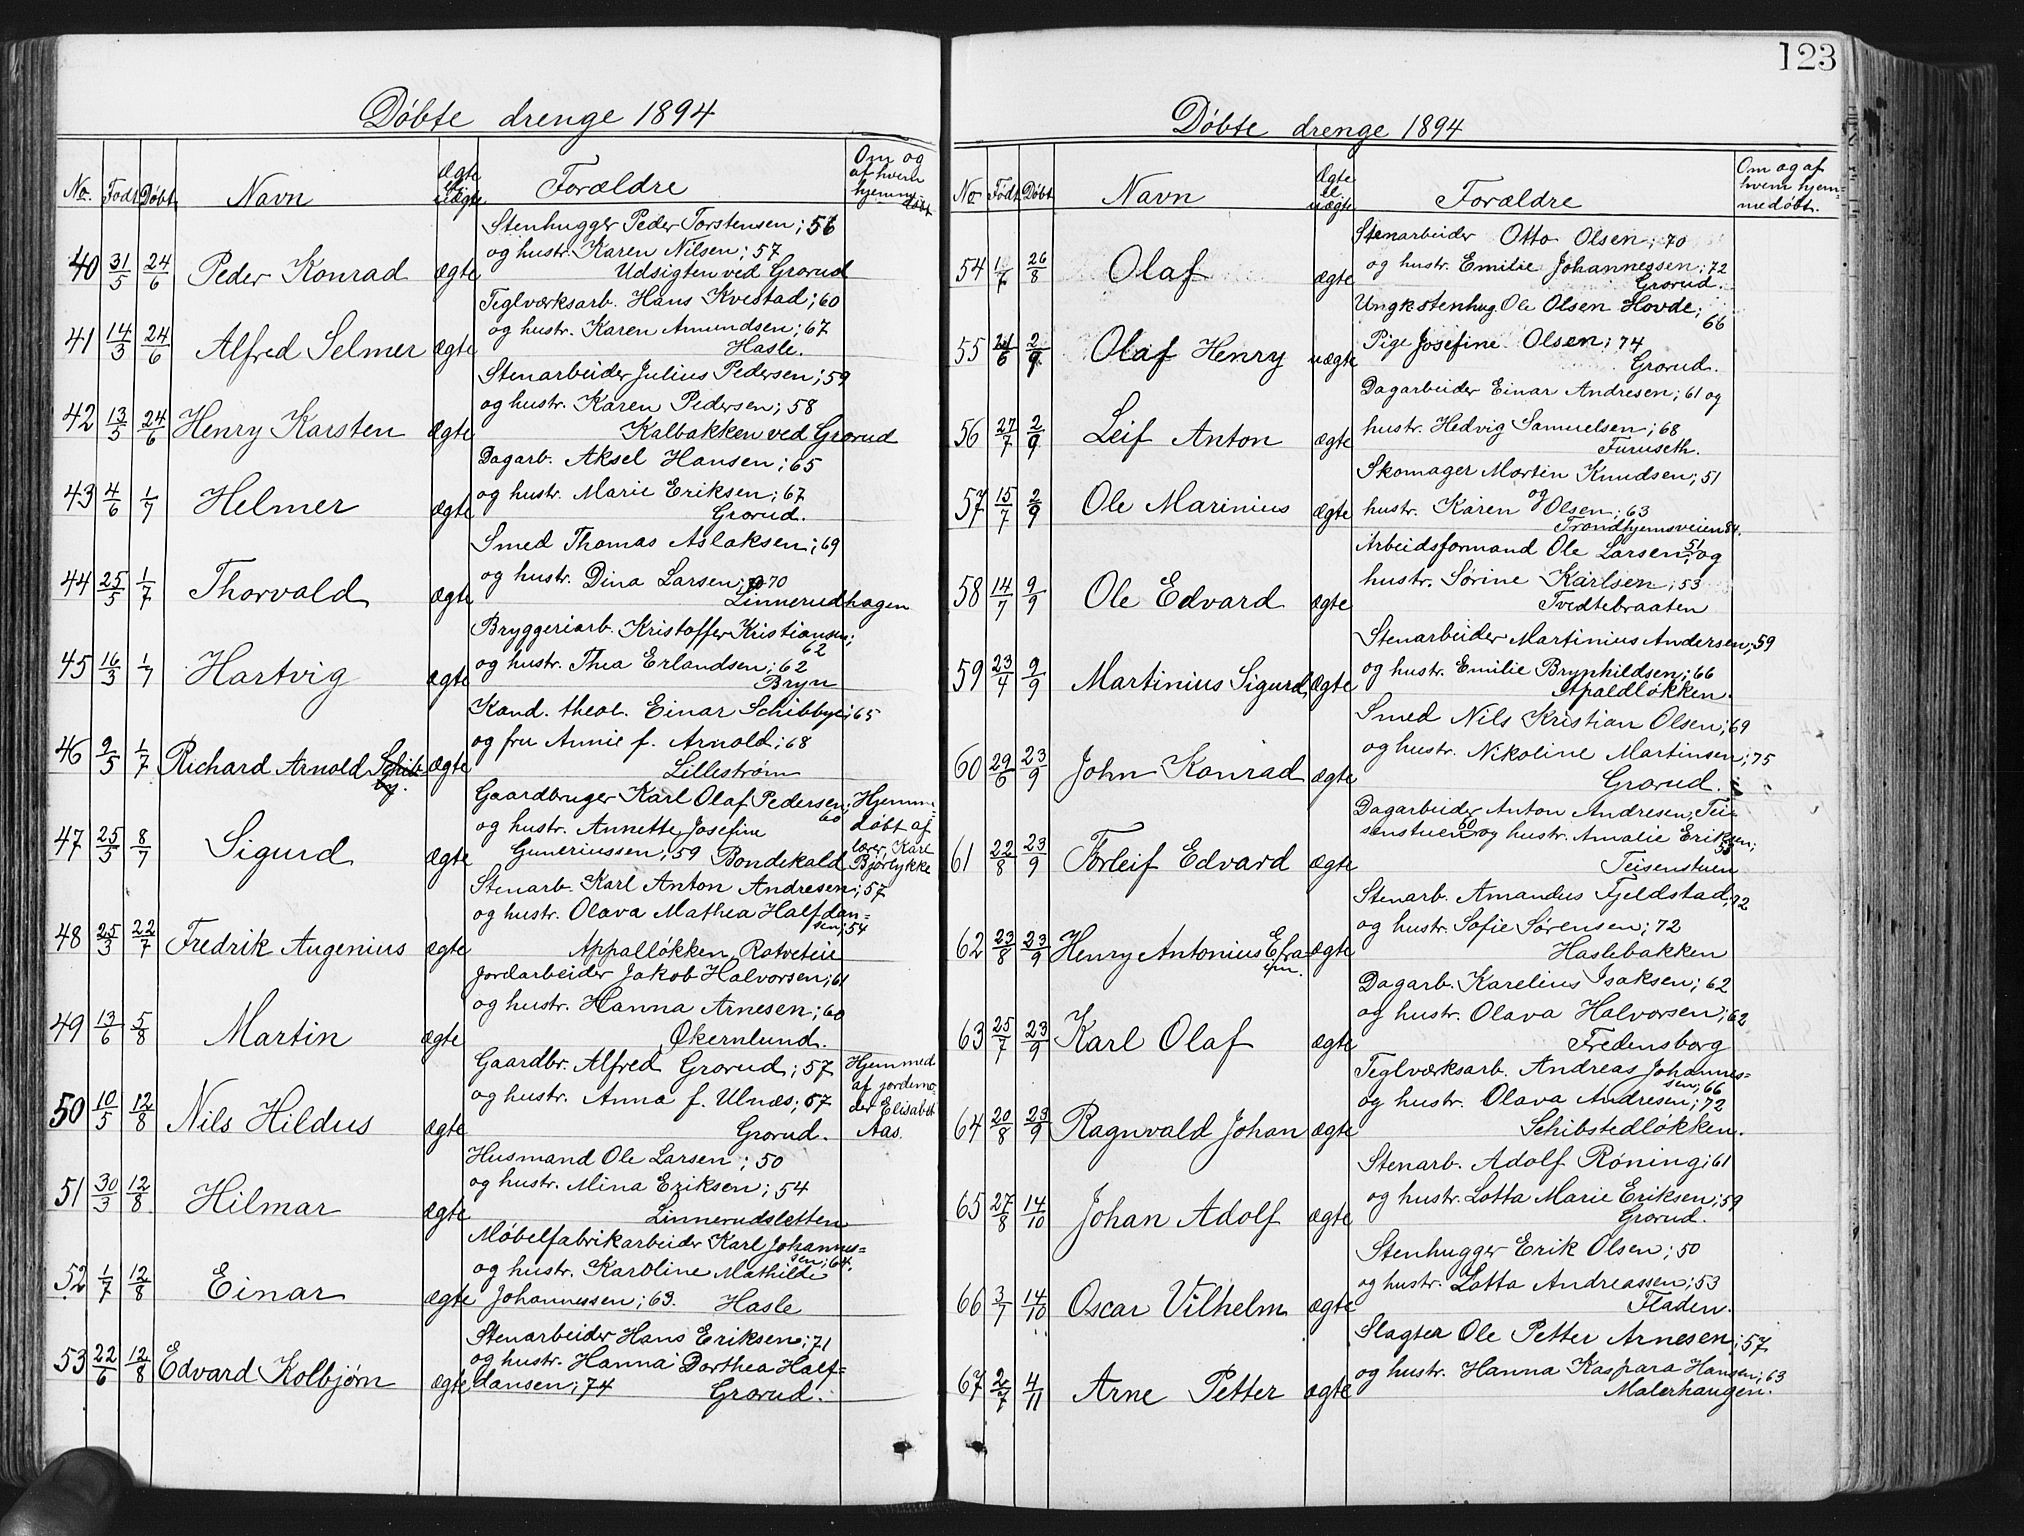 Døbte drenge 1894
No. Født Døbt Navn Ægte el. uægte Forældre Om og af hvem hjemmedøbt
Stenhugger Peder Torstensen; 56
og hustr. Karen Nilsen; 57
40 31/5 24/6 Peder Konrad ægte Udsigten ved Grorud
Teglværksarb. Hans Kvestad; 60
og hustr. Karen Amundsen; 67
41 14/3 24/6 Alfred Selmer ægte Hasle.
Stenarbeider Julius Pedersen; 59
og hustr. Karen Pedersen; 58
42 13/5 24/6 Henry Karsten ægte Kalbakken ved Grorud
Dagarb. Aksel Hansen; 65
og hustr. Marie Eriksen; 67
43 4/6 1/7 Helmer ægte Grorud.
Smed Thomas Aslaksen; 69
og hustr. Dina Larsen; 70
44 25/5 1/7 Thorvald ægte Linnerudhagen
Bryggeriarb. Kristoffer Kristiansen; 62
og hustr. Thea Erlandsen; 62
45 16/3 1/7 Hartvig ægte Bryn
Kand. theol. Einar Schibbye; 65
og fru Annie f. Arnold; 68
46 9/5 1/7 Richard Arnold Schibby. ægte Lillestrøm
Gaardbruger Karl Olaf Pedersen; 60 Hjemm-
og hustr. Annette Josefine døbt af
47 25/5 8/7 Sigurd ægte Guneriussen; 59 Bondekald lærer Karl Bjørlykke
Stenarb. Karl Anton Andresen; 57
og hustr. Olava Mathea Halfdan=
sen; 54
48 25/3 22/7 Fredrik Augenius ægte Appalløkken, Ratveteie
Jordarbeider Jakob Halvorsen; 61
og hustr. Hanna Arnesen; 60
49 13/6 5/8 Martin ægte Økernlund.
Gaardbr. Alfred Grorud; 57 Hjemmed
og hustr. Anna f. Ulnæs; 67 af jordemo-
der Elisabet
50 10/5 12/8 Nils Hildus ægte Grorud. Aas.
Husmand Ole Larsen; 50
og hustr. Mina Eriksen; 54
51 30/3 12/8 Hilmar ægte Linnerudsletten
Møbelfabrikarbeider Karl Johannes=
sen; 64.
og hustr. Karoline Mathilde
52 1/7 12/8 Einar ægte Johannessen; 63. Hasle
Stenarbeider Hans Eriksen; 71
og hustr. Hanna Dorthea Half=
53 22/6 12/8 Edvard Kolbjørn ægte dansen; 74 Grorud.
123
Døbte drenge 1894
No Født Døbt Navn Ægte el. uægte Forældre Om og af hvem hjem=medøbt.
Stenarbeider Otto Olsen; 70
og hustr. Emilie Johannessen; 72
54 1/7 26/8 Olaf ægte Grorud.
Ungk. stenhug. Ole Olsen Hovde; 66
Pige Josefine Olsen; 74
55 24/6 2/9 Olaf Henry uægte Grorud.
Dagarbeider Einar Andresen; 61 og
hustr. Hedvig Samuelsen; 68
56 27/7 2/9 Leif Anton ægte Furuseth.
Skomager Martin Knudsen; 51
og
57 15/7 2/9 Ole Marinius ægte hustr. Karen Olsen; 63
Trondhjemsveien 84.
Arbeidsformand Ole Larsen; 51 og
hustr. Sørine Karlsen; 53
58 14/7 9/9 Ole Edvard ægte Tvedtebraaten
Stenarbeider Martinius Andersen; 59
og hustr. Emilie Brynhildsen; 66
59 23/4 9/9 Martinius Sigurd ægte Apaldløkken.
Smed Nils Kristian Olsen; 69
og hustr. Nikoline Martinsen; 75
60 29/6 23/9 John Konrad ægte Grorud.
Dagarbeider Anton Andresen, Tei-
senstuen 60 og hustr. Amalie Eriksen;
61 22/8 23/9 Torleif Edvard ægte Teisenstuen
Stenarb. Amandus Fjeldstad; 72
og hustr. Sofie Sørensen; 72
62 23/8 23/9 Henry Antonius Efraim. ægte Haslebakken
Dagarb. Karelius Isaksen; 62
og hustr. Olava Halvorsen; 62
63 25/7 23/9 Karl Olaf ægte Fredensborg
Teglværksarb. Andreas Johannes=
sen; 66
og hustr. Olava Andresen; 72
64 20/8 23/9 Ragnvald Johan ægte Schibstedløkken.
Stenarb. Adolf Røning; 61
og hustr. Lotta Marie Eriksen; 59
65 27/8 14/10 Johan Adolf ægte Grorud.
Stenhugger Erik Olsen; 50
og hustr. Lotta Andreassen; 53
66 3/7 14/10 Oscar Vilhelm ægte Fladen.
Slagter Ole Petter Arnesen; 57
og hustr. Hanna Kaspara Hansen; 63
67 2/7 4/11 Arne Petter ægte Malerhaugen.